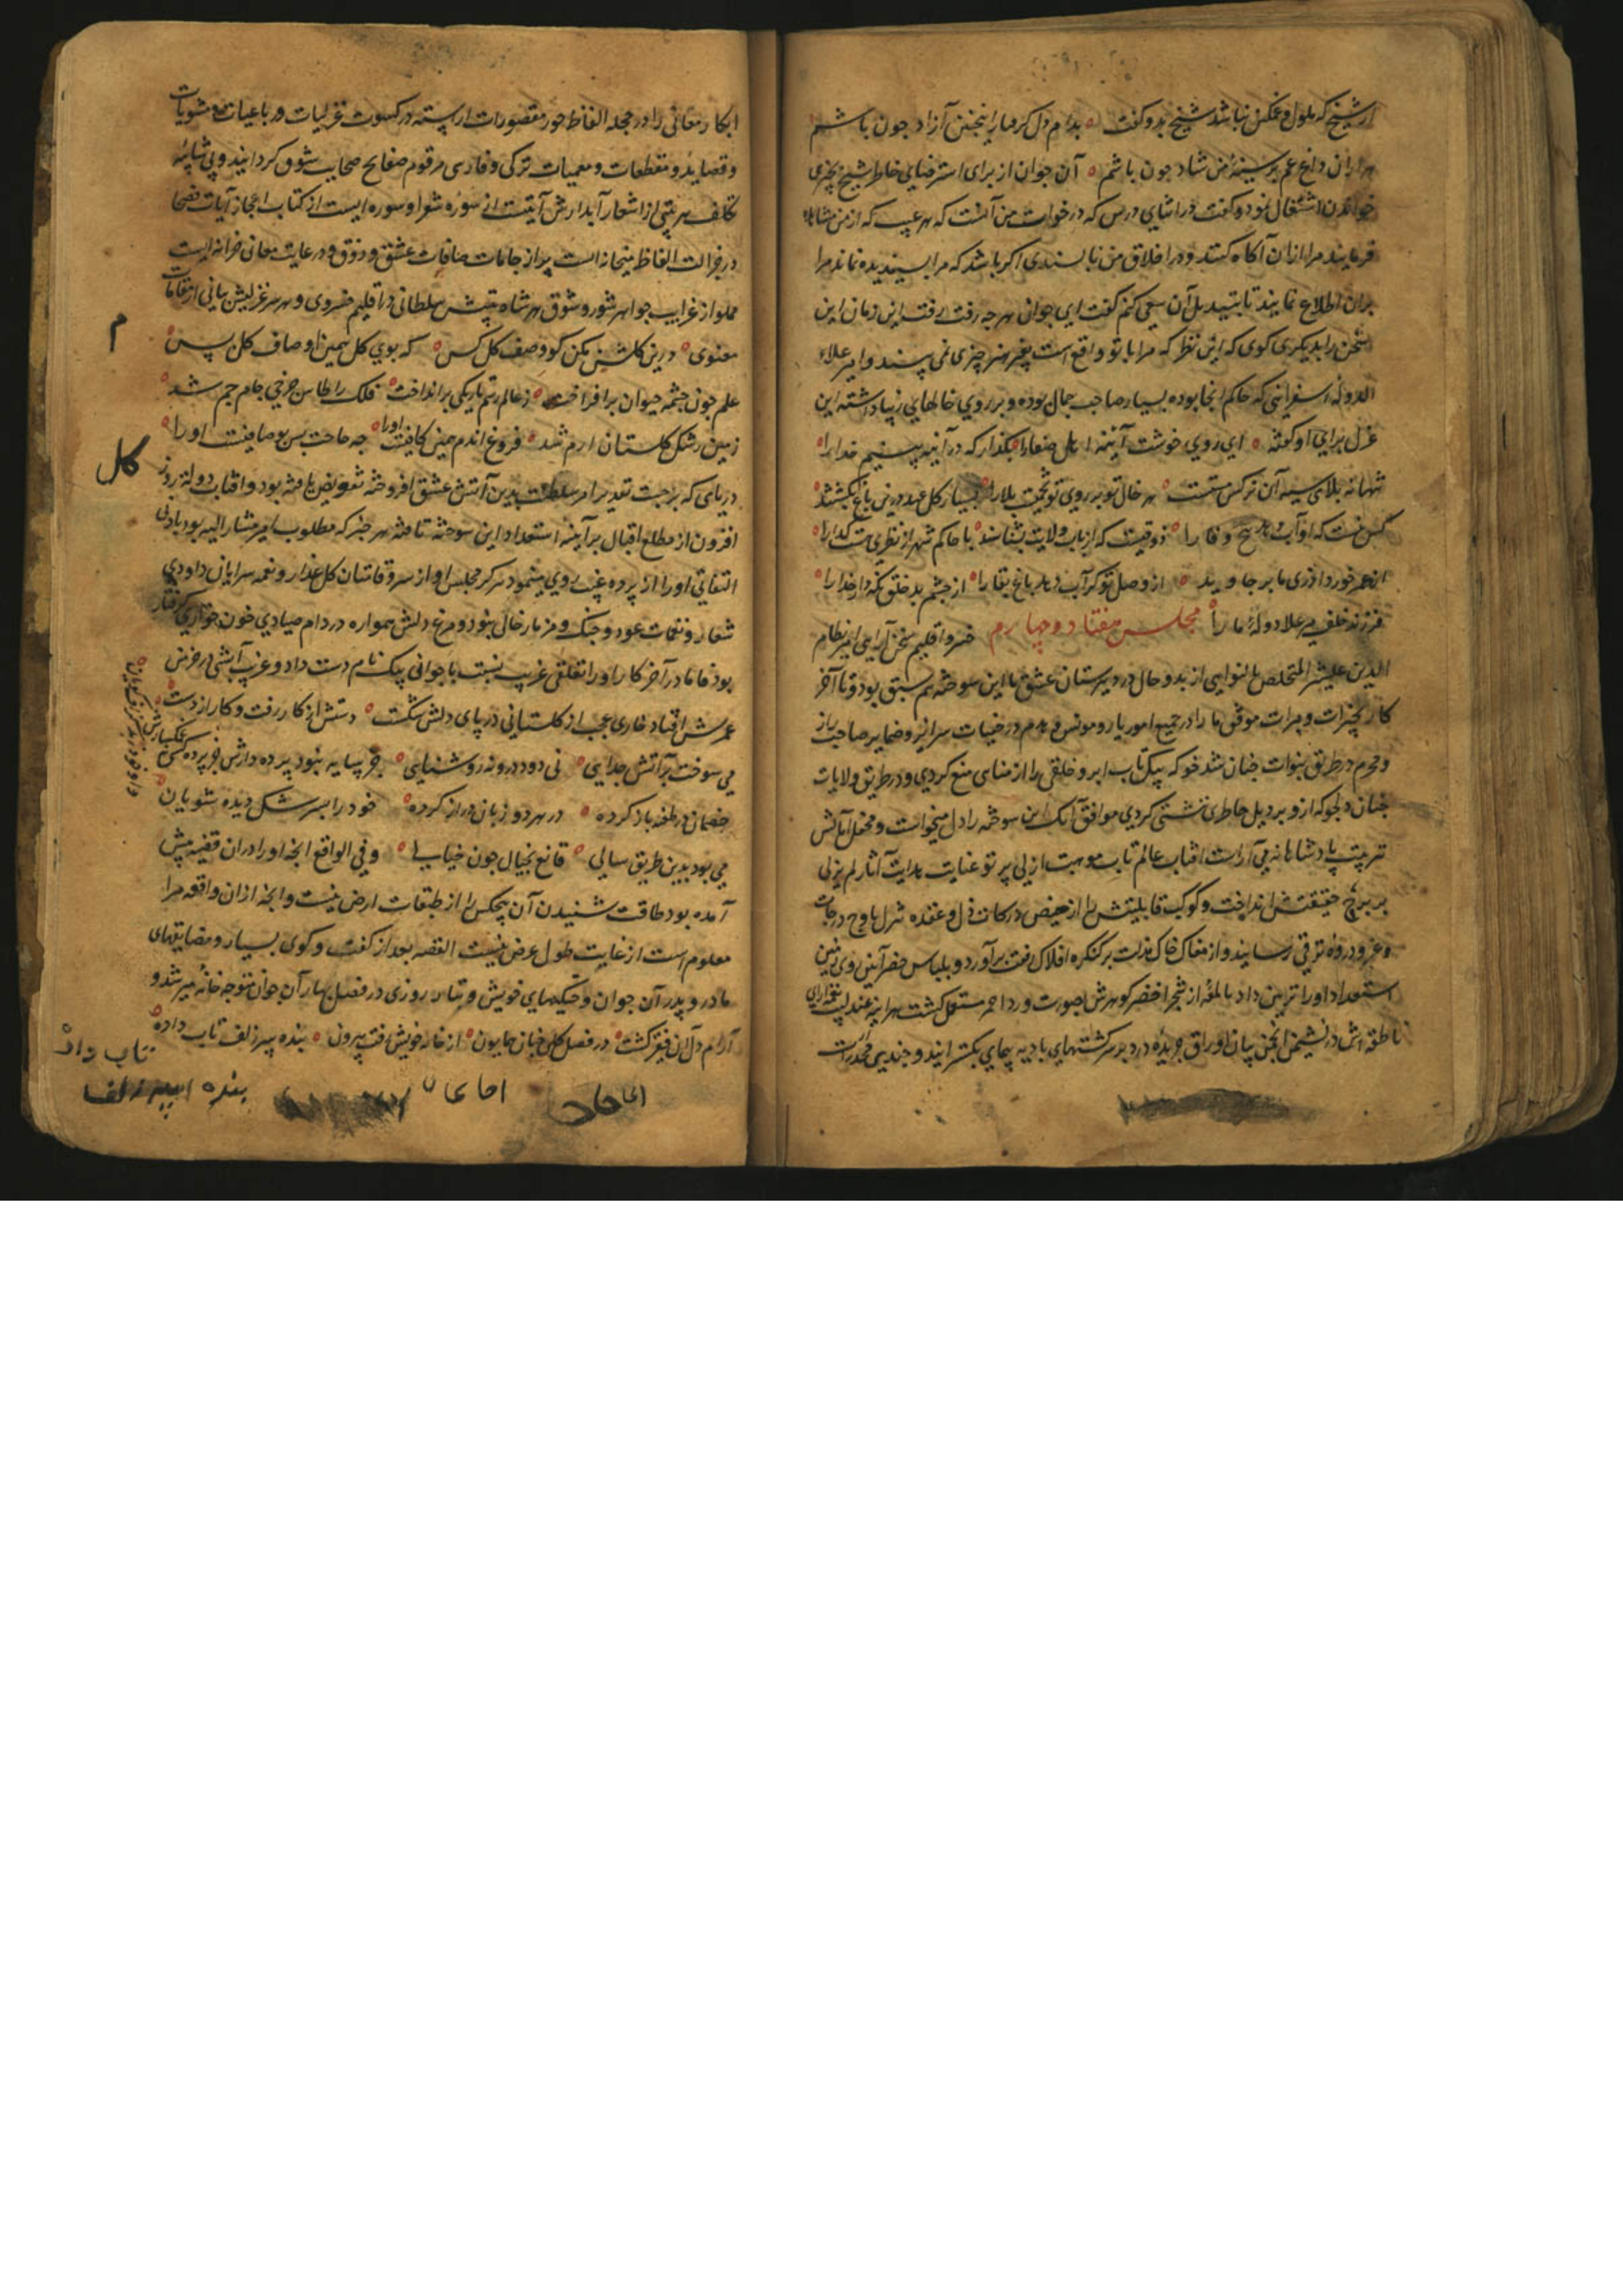 از شیخ که ملول و غمکین نباشد شیخ بدو کفت بدام دل کرفتار اینجنین آزاد جون باشم
هزاران داغ غم بر سینهٔ من شاد جون باشم آن جوان از برای استرضایی خاطر شیخ بچیزی
خواندن اشتغال نمود و کفت در اثنای درس که درخواست من آنست که هر عیب که از من مشاهده
فرمایند مرا ازان آکاه کنند و در اخلاق من ناپسندی اکر باشد که مرا پسندیده نماند مرا
بران اطلاع نمایند تا بتبدیل آن سعی کنم کفت ای جوان هر جه رفت رفت این زمان این
سخن را بدیکری کوی که این نظر که مرا با تو واقع است بغیر هنر چیزی نمی پسند و امیر علاء
الدوله اسفراینی که حاکم انجا بوده بسیار صاحب جمال بوده و بر روی خالهای زیبا داشته این
غزل برای او کفته ای روی خوشت آینه اهل صفا را بکذار که در آینه بینیم خدا را
تنها نه بلای سیه آن نرکس مستست هر خال تو بر روی تو تخمیست بلا را بسیار کل عهد درین باغ بکشتند
کس نیست که او آب دهد هیچ وفا را ذوقیست که ارباب ولایت بشناسند با حاکم شهر از نظری هست کدا را
از عمر خورد آذری ما بر جاوید از وصل تو کر آب دهد باغ بقا را از جشم بد خلق نکه دار خدا را
فرزند خلف میر علا دولهٔ ما را مجلس هفتاد و چهارم خسرو اقلیم سخن آرایی امیر نظام
الدین علیشیر المتخلص بالنوایی از بدو حال در دبیرستان عشق با این سوخته هم سبق بود و تا آخر
کار بخیرات و مبرات موفق ما را در جمیع امور یار و مونس و همدم در خفیات سرایر و ضمایر صاحب راز
و محرم در طریق بنوات جنان شد خو که پیک تاب ابرو خلقی را از مناهی منع کردی و در طریق ولایات
جنان دلجو که ازو بر دل خاطری ننشستی کردی موافق آنک این سوخته را دل میخواست و محفل آمالش
تربیت پادشاهانه می آراست افتاب عالم تاب موهبت ازلی پرتو عنایت هدایت آثار لم یزلی
بر برج حقیقتش انداخت و کوکب قابلیتش را از حضیض درکات ذل و عقده تنزل باوج درجات
و عز و دروه ترقی رسانید و از مغاک خاک مذلت بر کنکره افلاک رفعت برآورد و بلباس خضر آیین روی زمین
استعداد او را تزیین داد بالمغه از شجر اخضر کوهرش بصورت ورد احمر مستقل کشت هر آینه عندلیب نغمه سرای
ناطقه اش در نشیمن انجمن بیان اوراق جریده درد بر سرکشتهای بادیه پیمای بکسترانید و جندین مخدرات
ابکار معانی را در حجله الفاظ حور مقصورات آراسته در کسوت غزلیات و رباعیات و مثنویات
و قصاید و مقطعات و معمیات ترکی و فارسی مرقوم صفایح صحایب شوق کردانید و بی شایبه
تکلف هر بیتی از اشعار آبدارش آیتیست از سوره شعرا و سوره ایست از کتاب اعجاز آیات فصحا
در جزالت الفاظ میخانه است پر از جامات صافات عشق و ذوق و در رعایت معانی خزانه ایست
مملو از غرایب جواهر شور و شوق هر شاه بیتش سلطانی در اقلیم خسروی و هر سر غزلیش بیانی از مقامات
معنوی درین کلشن مکن کو وصف کل کس که بوی کل همین اوصاف کل بس
علم جون جشمه حیوان برافراخت ز عالم رسم تاریکی برانداخت فلک را طاس جرخی جام جم شد
زمین رشک کلستان ارم شد فروغ اندم همین کافیست او را جه حاجت بس بوصافیت او را
م
کل
دریای که بر جست تقدیر امر سلطنت بدین آتش عشق افروخته تفویض یافته بود و افتاب دولت روز
افزون از مطلع اقبال بر آینه استعداد این سوخته تافته هر جیز که مطلوب امیر مشار الیه بود بادنی
التفاتی او را از پرده غیب روی مینمود هرکز مجلس او از سروقامتان کل عذار و نغمه سرایان داودی
شعار و نغمات عود و جنک و مزمار خالی نبود و مرغ دلش همواره در دام صیادی خون خواری کرفتار
بود فاما در آخر کار او را تعلقی غریب نسبت با جوانی پیک نام دست داد و غریب آتشی در خرمن
عمرش افتاد خاری عجب از کلستانی در پای دلش شکست دستش از کار رفت و کار از دست
می سوخت بر آتش جدایی نی دود درو نه روشنایی جز سایه نبود پرده دارش جز پرده کسی
غمکسارش
خصمان در طعنه باز کرده در هر دو زبان دراز کرده خود را بسرشک دیده شویان
می بود بدین طریق سالی قانع بخیال جون خیالی و فی الواقع انجه او را دران قضیه پیش
آمده بود طاقت شنیدن آن هیچکس را از طبقات ارض نیست و انجه ازان واقعه مرا
معلوم است از غایت طول عرض نیست القصه بعد از کفت و کوی بسیار و مضایقهای
مادر و پدر آن جوان و جنکهای خویش و تبار روزی در فصل بهار آن جوان متوجه خانه میر شد و
آرام دل آن فقیر کشت در فصل کل جنان همایون از خانه خویش رفت بیرون بنده بسر زلف تاب داده
تاب داد
بنده ابسر زلف